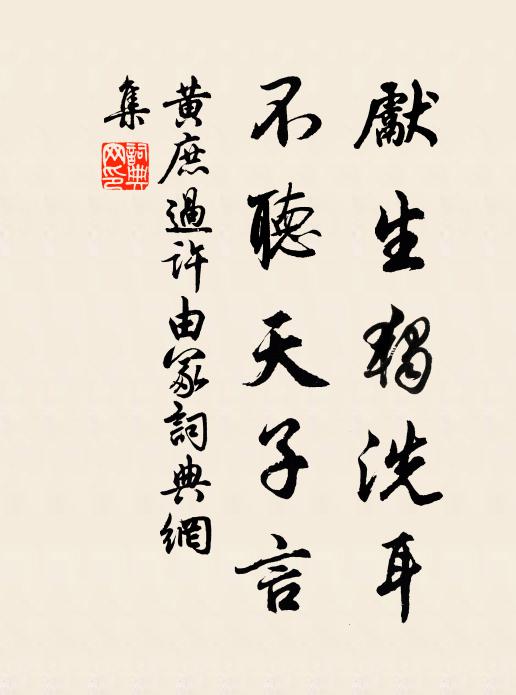 獻生獨洗耳
不聽天子言
黃庶過許由冢詞典網
集
詞典
网印